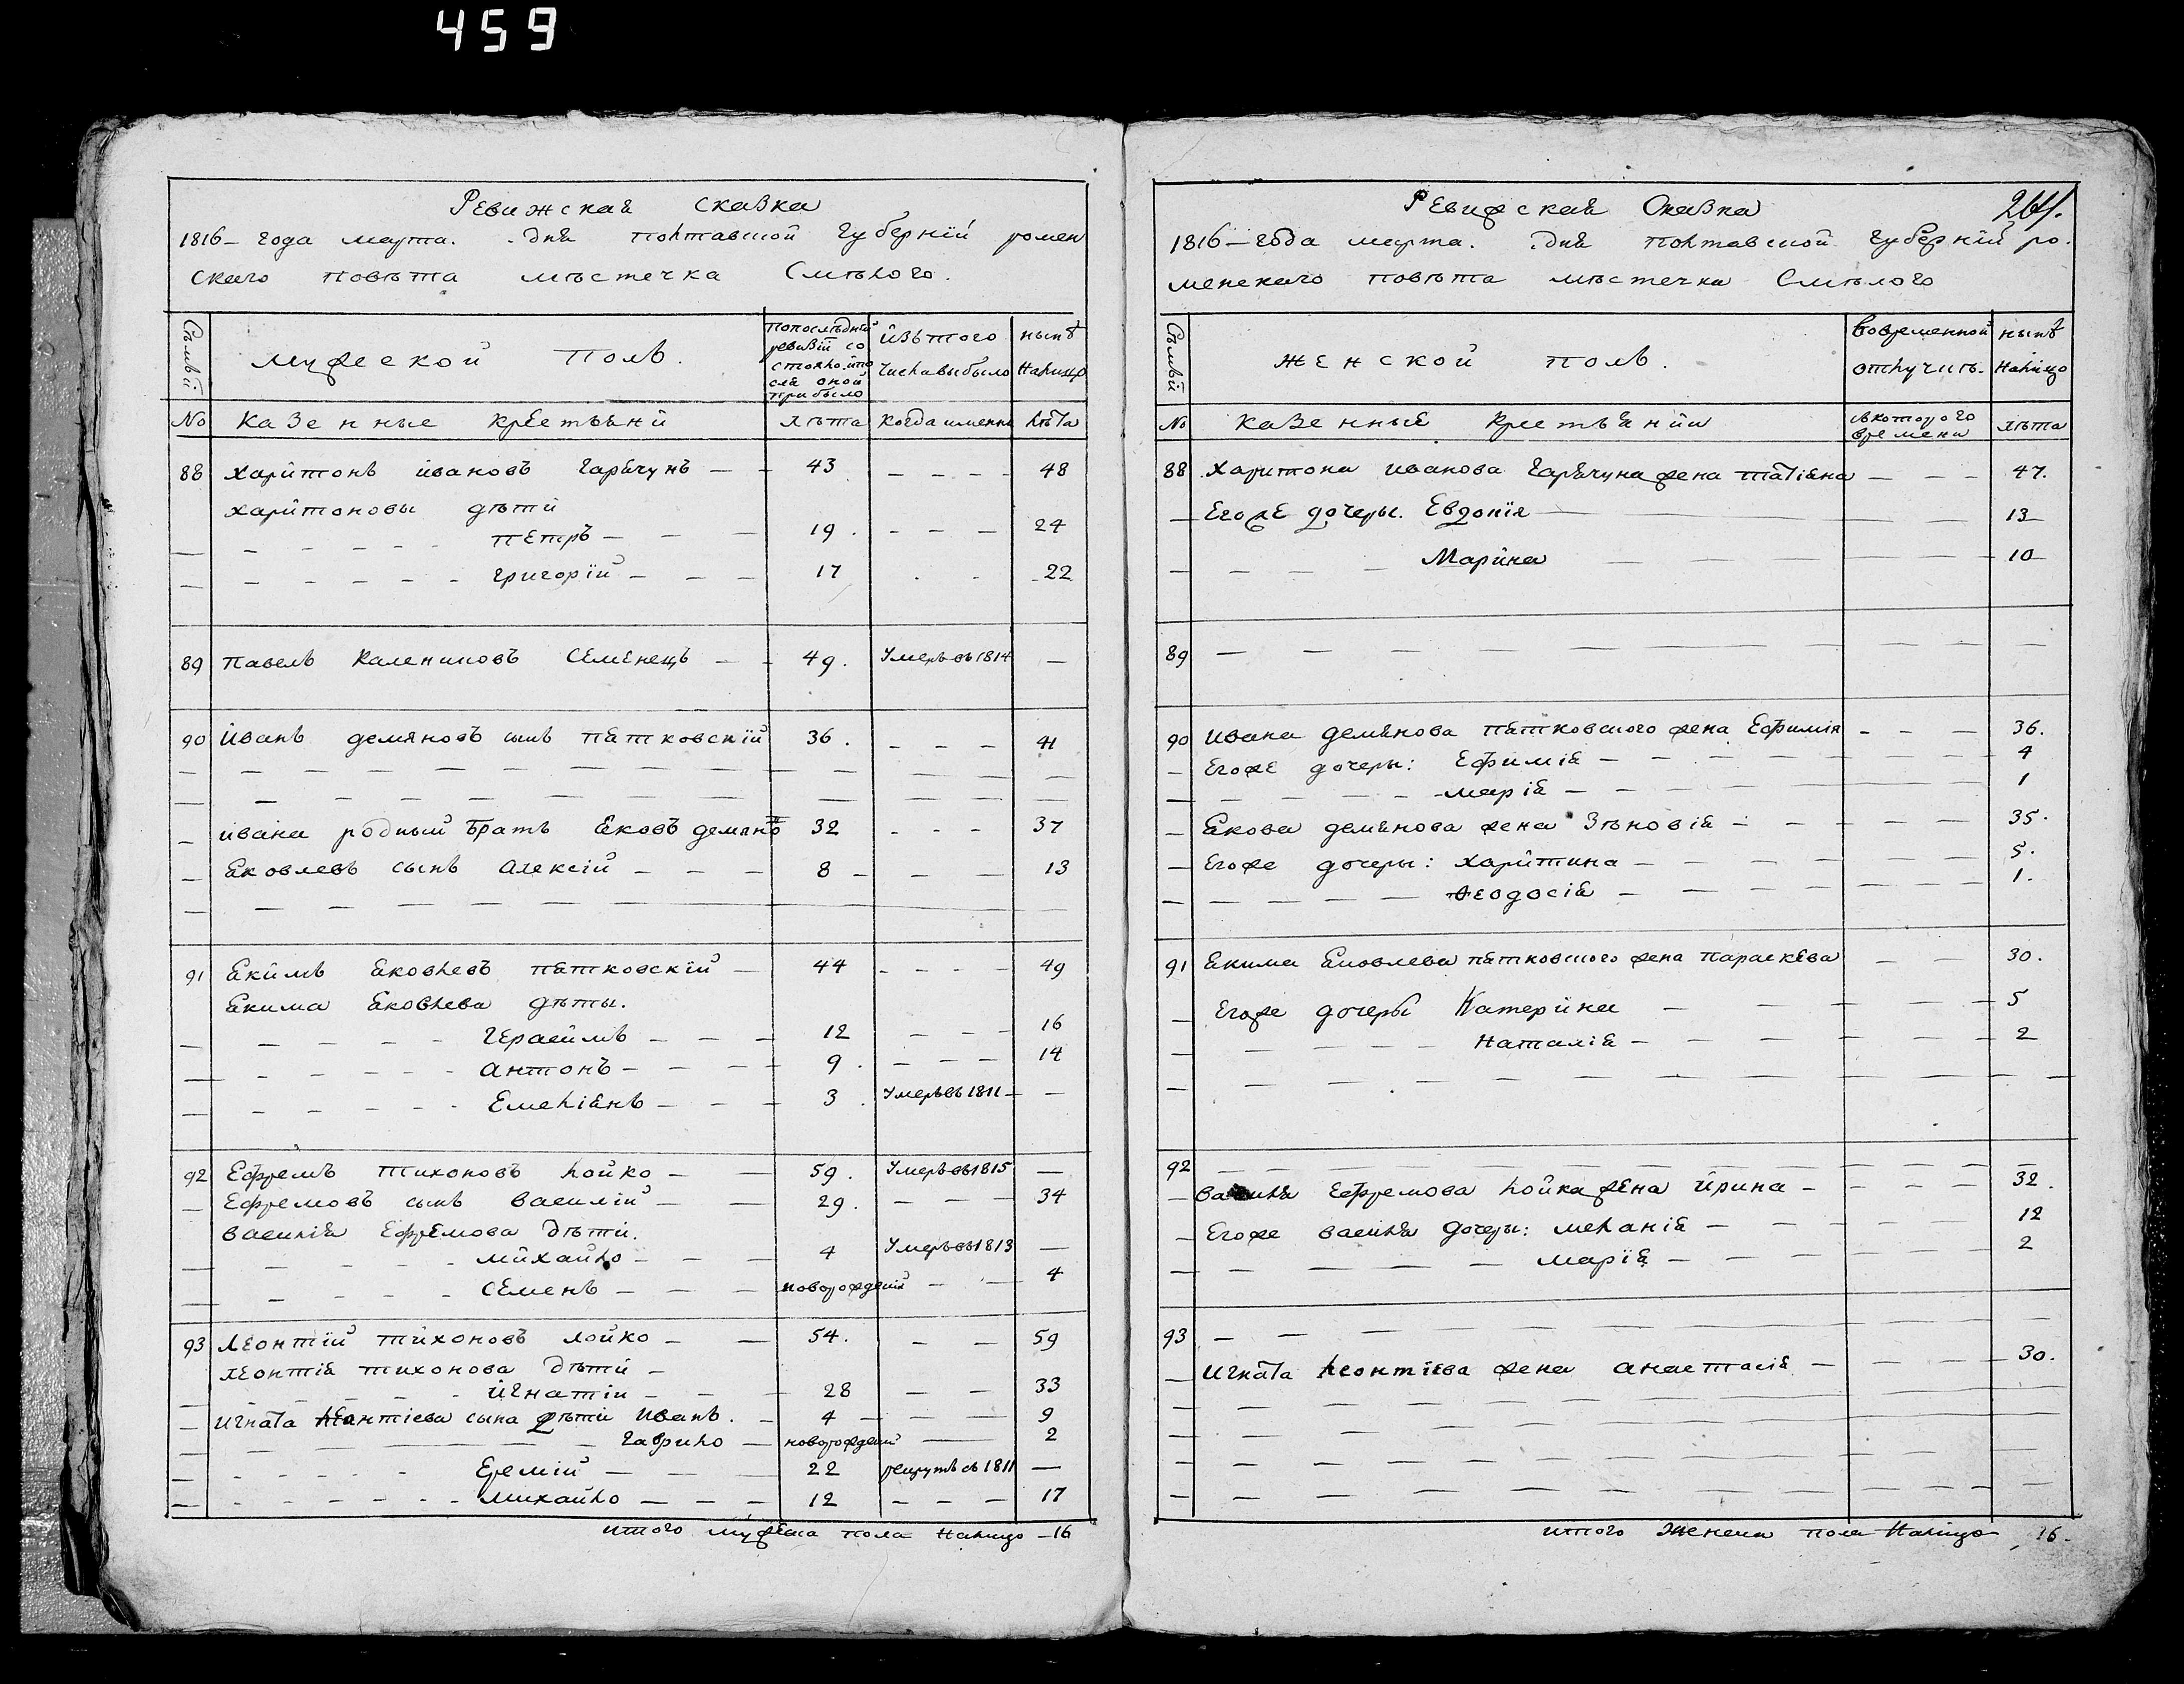 459
Ревижская сказка
1816 – года марта. дня полтавской губернїй ромен
скаго повѣта мѣстечка Смѣлого.
Съмьй
мужеской полъ.
попослѣдней ревизїй со стояло ипо сле оной прибыло
изъ того числа выбыло
нынѣ налицо
No Казенные крестьяни лѣта когда именно лѣта
88 Харитонъ ивановъ гарячунъ — 43 — — — 48
харитоновы дѣти
— — — петръ — 19 . — — — 24
— — — григорїй — 17 . — 22
89 павелъ калениковъ семенецъ — 49. Умеръ въ 1814 —
90 иванъ демяновъ сынъ пятковскїй 36. — — — 41
ивана родный братъ яковъ демяно 32 — — — 37
яковлевъ сынъ алексїй — 8 — — — 13
91 якимъ яковлевъ пятковскїй — 44 — — — 49
якима яковлева дѣты.
— — — герасимъ — 12 — — — 16
— — — антонъ — 9 . — — — 14
— — — Емеліянъ — 3 . Умеръ въ 1811 —
92 Ефремъ тихоновъ лойко — 59. Умеръ въ 1815 —
Ефремовъ сынъ василїй — 29. — — — 34
василія Ефремова дѣти.
— — — михайло — 4 Умеръ въ 1813 —
— — — семенъ — новорожденій — 4
93 леонтїй тихоновъ лойко — 54. — — 59
леонтія тихонова дѣти —
— — — игнатїи — 28 — — 33
игната леонтіева сына дѣти иванъ. — 4 — — 9
— — — гаврило — новорожденій — 2
— — — Еремїй — 22 рекрутъ съ 1811 —
— — — михайло — 12 — — — 17
итого мужеска пола налицо — 16
Ревижская сказка
1816 – года марта. дня полтавской губернїй ро.
менскаго повѣта мѣстечка Смѣлого
Съмьй
женской полъ.
вовременной отлучкѣ.
нынѣ налицо
No казенные крестьянии съ которого времени лѣта
88 харитона иванова гарячуна жена татіяна — — — 47.
— Его же дочеры. Евдокїя — 13
— — — Марина — 10
89 — — —
90 ивана демянова пятковского жена Ефимія — — — 36.
— Егоже дочеры: Ефимія — 4
— — — марія — 1
— якова демянова жена Зѣновія — 35.
— Егоже дочеры: харитина — 5.
— — — Феодосія — 1.
91 якима яковлева пятковского жена параскева — — 30.
— Егоже дочеры Катерина — 5
— — — наталія — 2
92 — — —
— василя Ефремова лойка жена ирина — 32.
— Егоже василя дочеры: меланія — 12
— — — марїя — 2
93 — — —
— игната леонтїева жена анастасія — 30.
итого женска пола налицо 16.